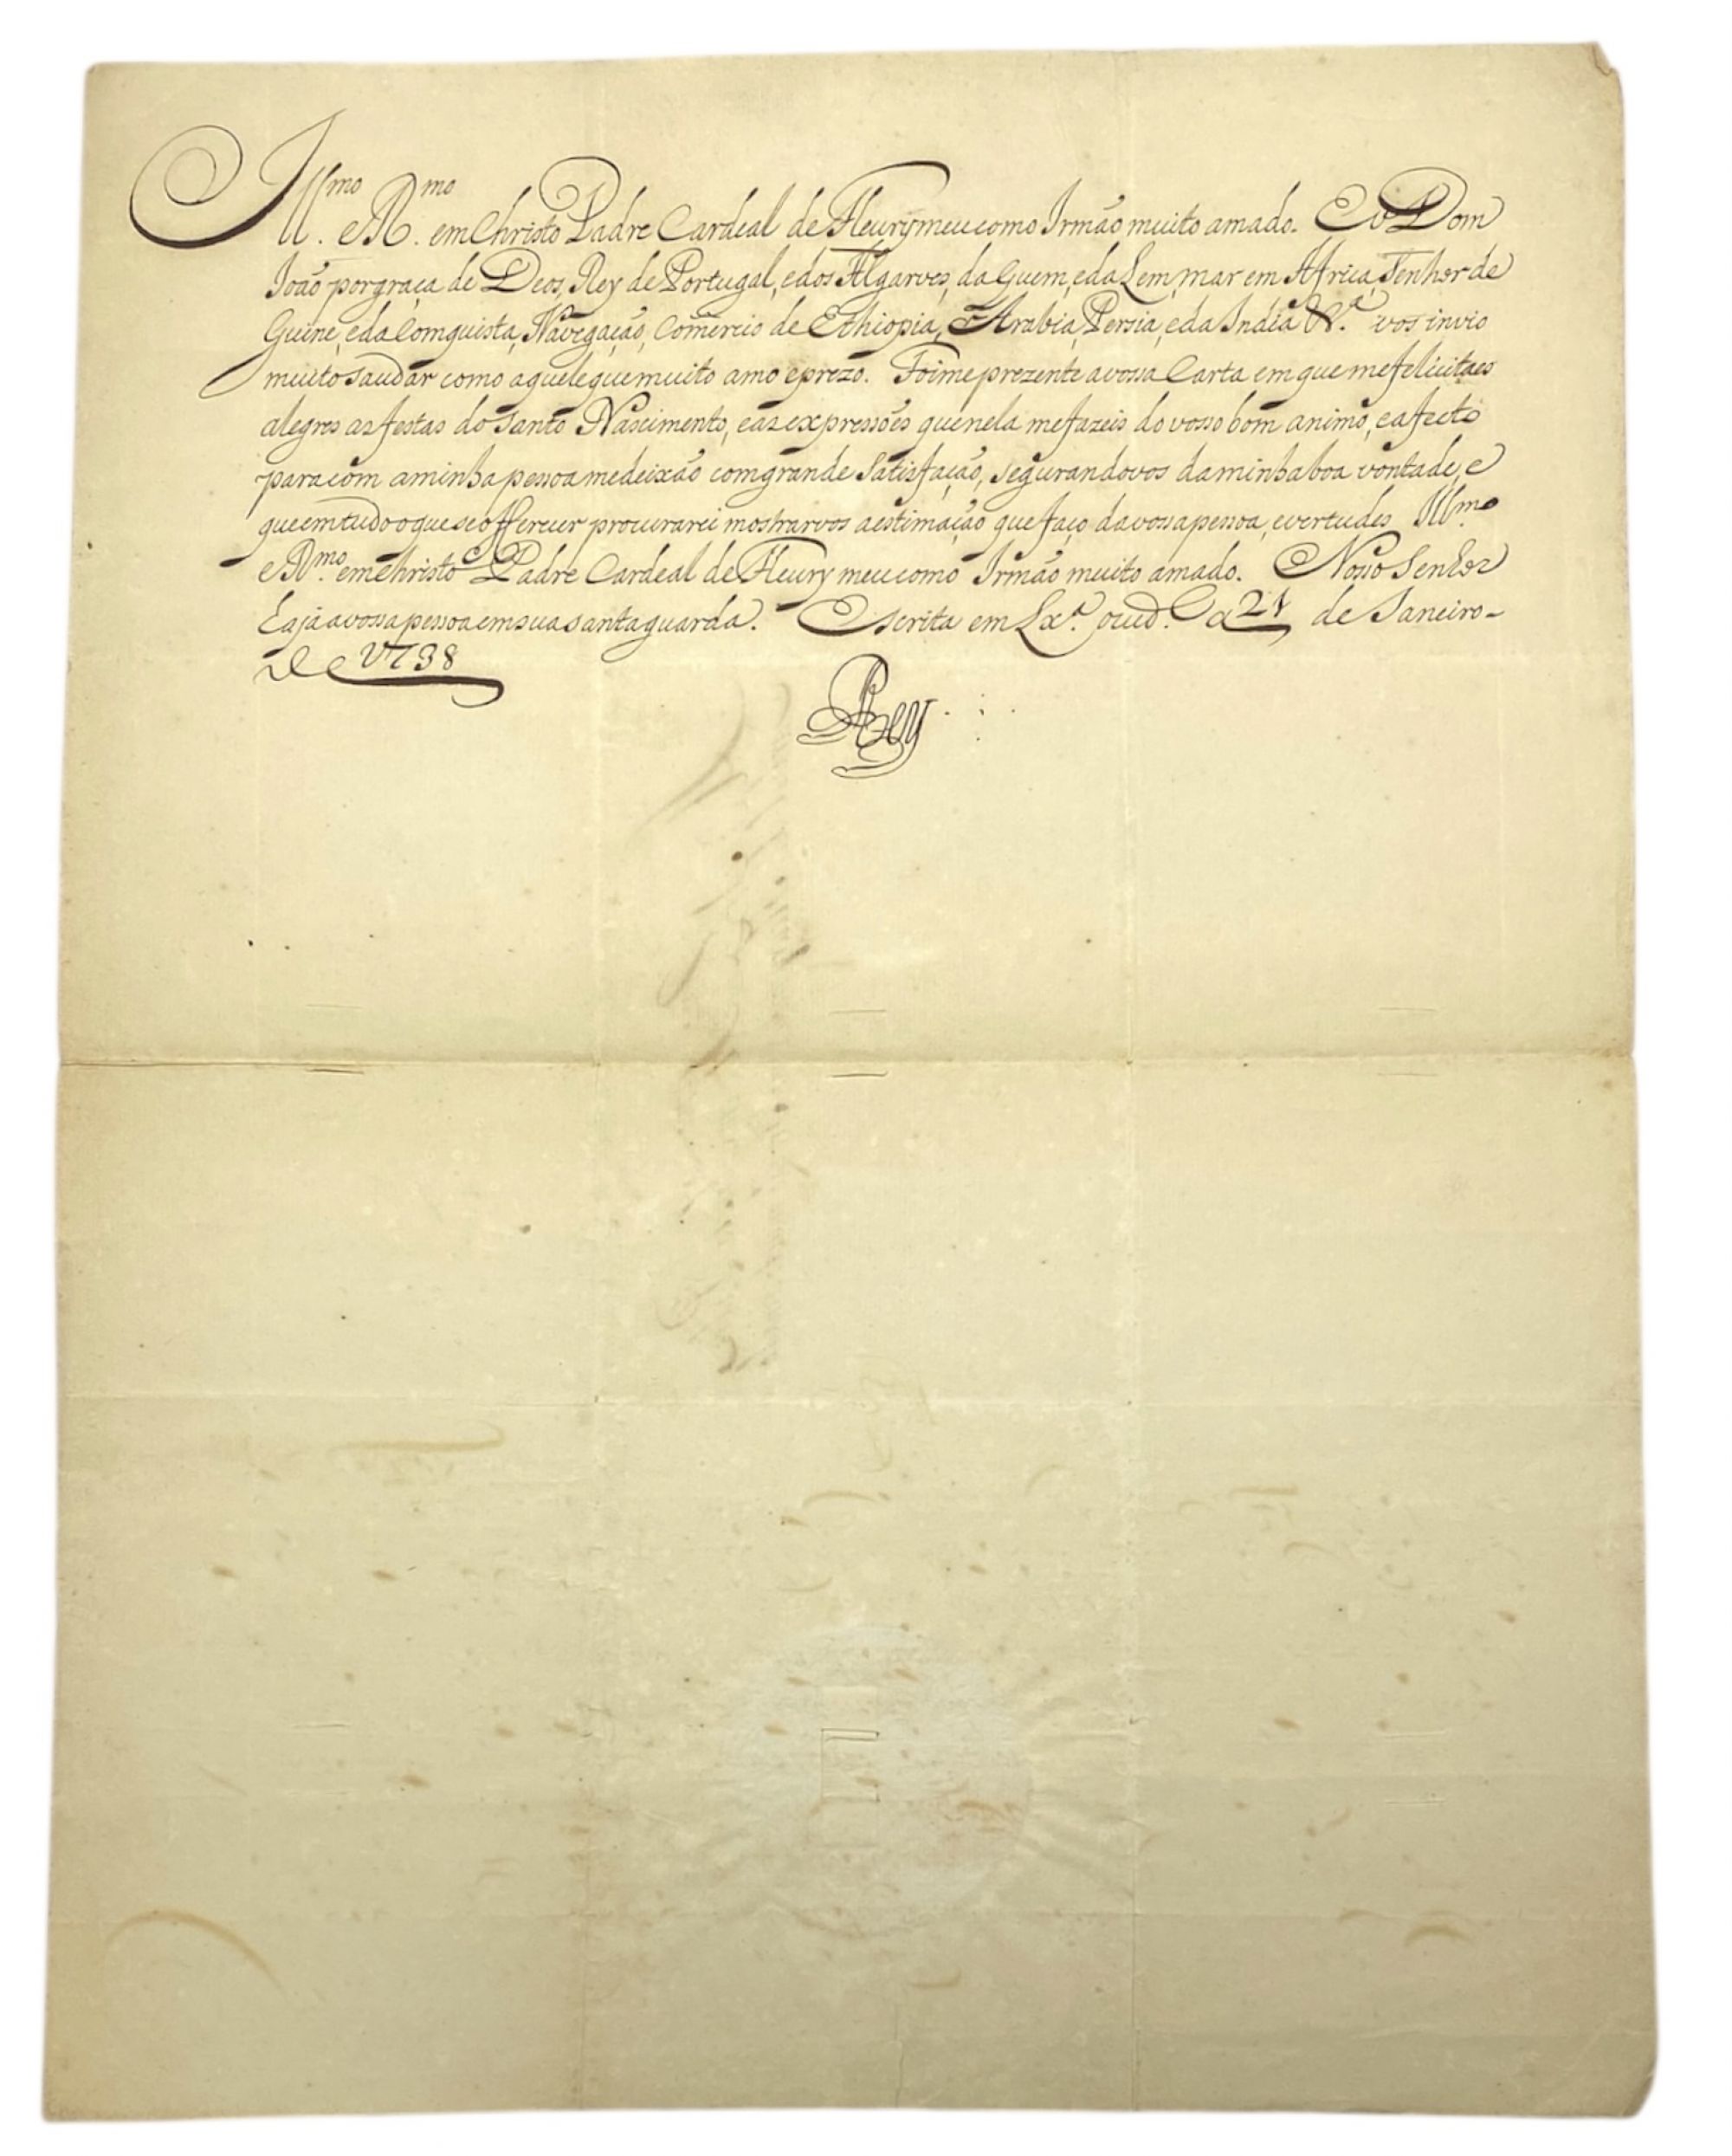 Ill.mo e R.mo em Christo Padre Cardeal de Fleury meu como Irmão muito amado. Eu Dom
João por graça de Deos, Rey de Portugal, e dos Algarves, da quem, e da Lem, mar em Africa, Senhor de
Guine, e da Comquista, Navegação, Comercio de Ethiopia, Arabia, Persia, e da India &.ª vos invio
muito saudar como aquele que muito amo e prezo. Foime prezente a vossa Carta em que me felicitaes
alegres as festas do Santo Nascimento, e as expressões que nela me fazeis do vosso bom animo, e afecto
para com a minha pessoa me deixão com grande Satisfação, segurandovos da minha boa vontade, e
que em tudo o que se offerecer procurarei mostrarvos a estimação que faço da vossa pessoa, e vertudes Ill.mo
e R.mo em Christo Padre Cardeal de Fleury meu como Irmão muito amado. Nosso Senhor
haja a vossa pessoa em sua santa guarda. Escrita em Lx.ª a 21 de Janeiro-
de 1738
Rey